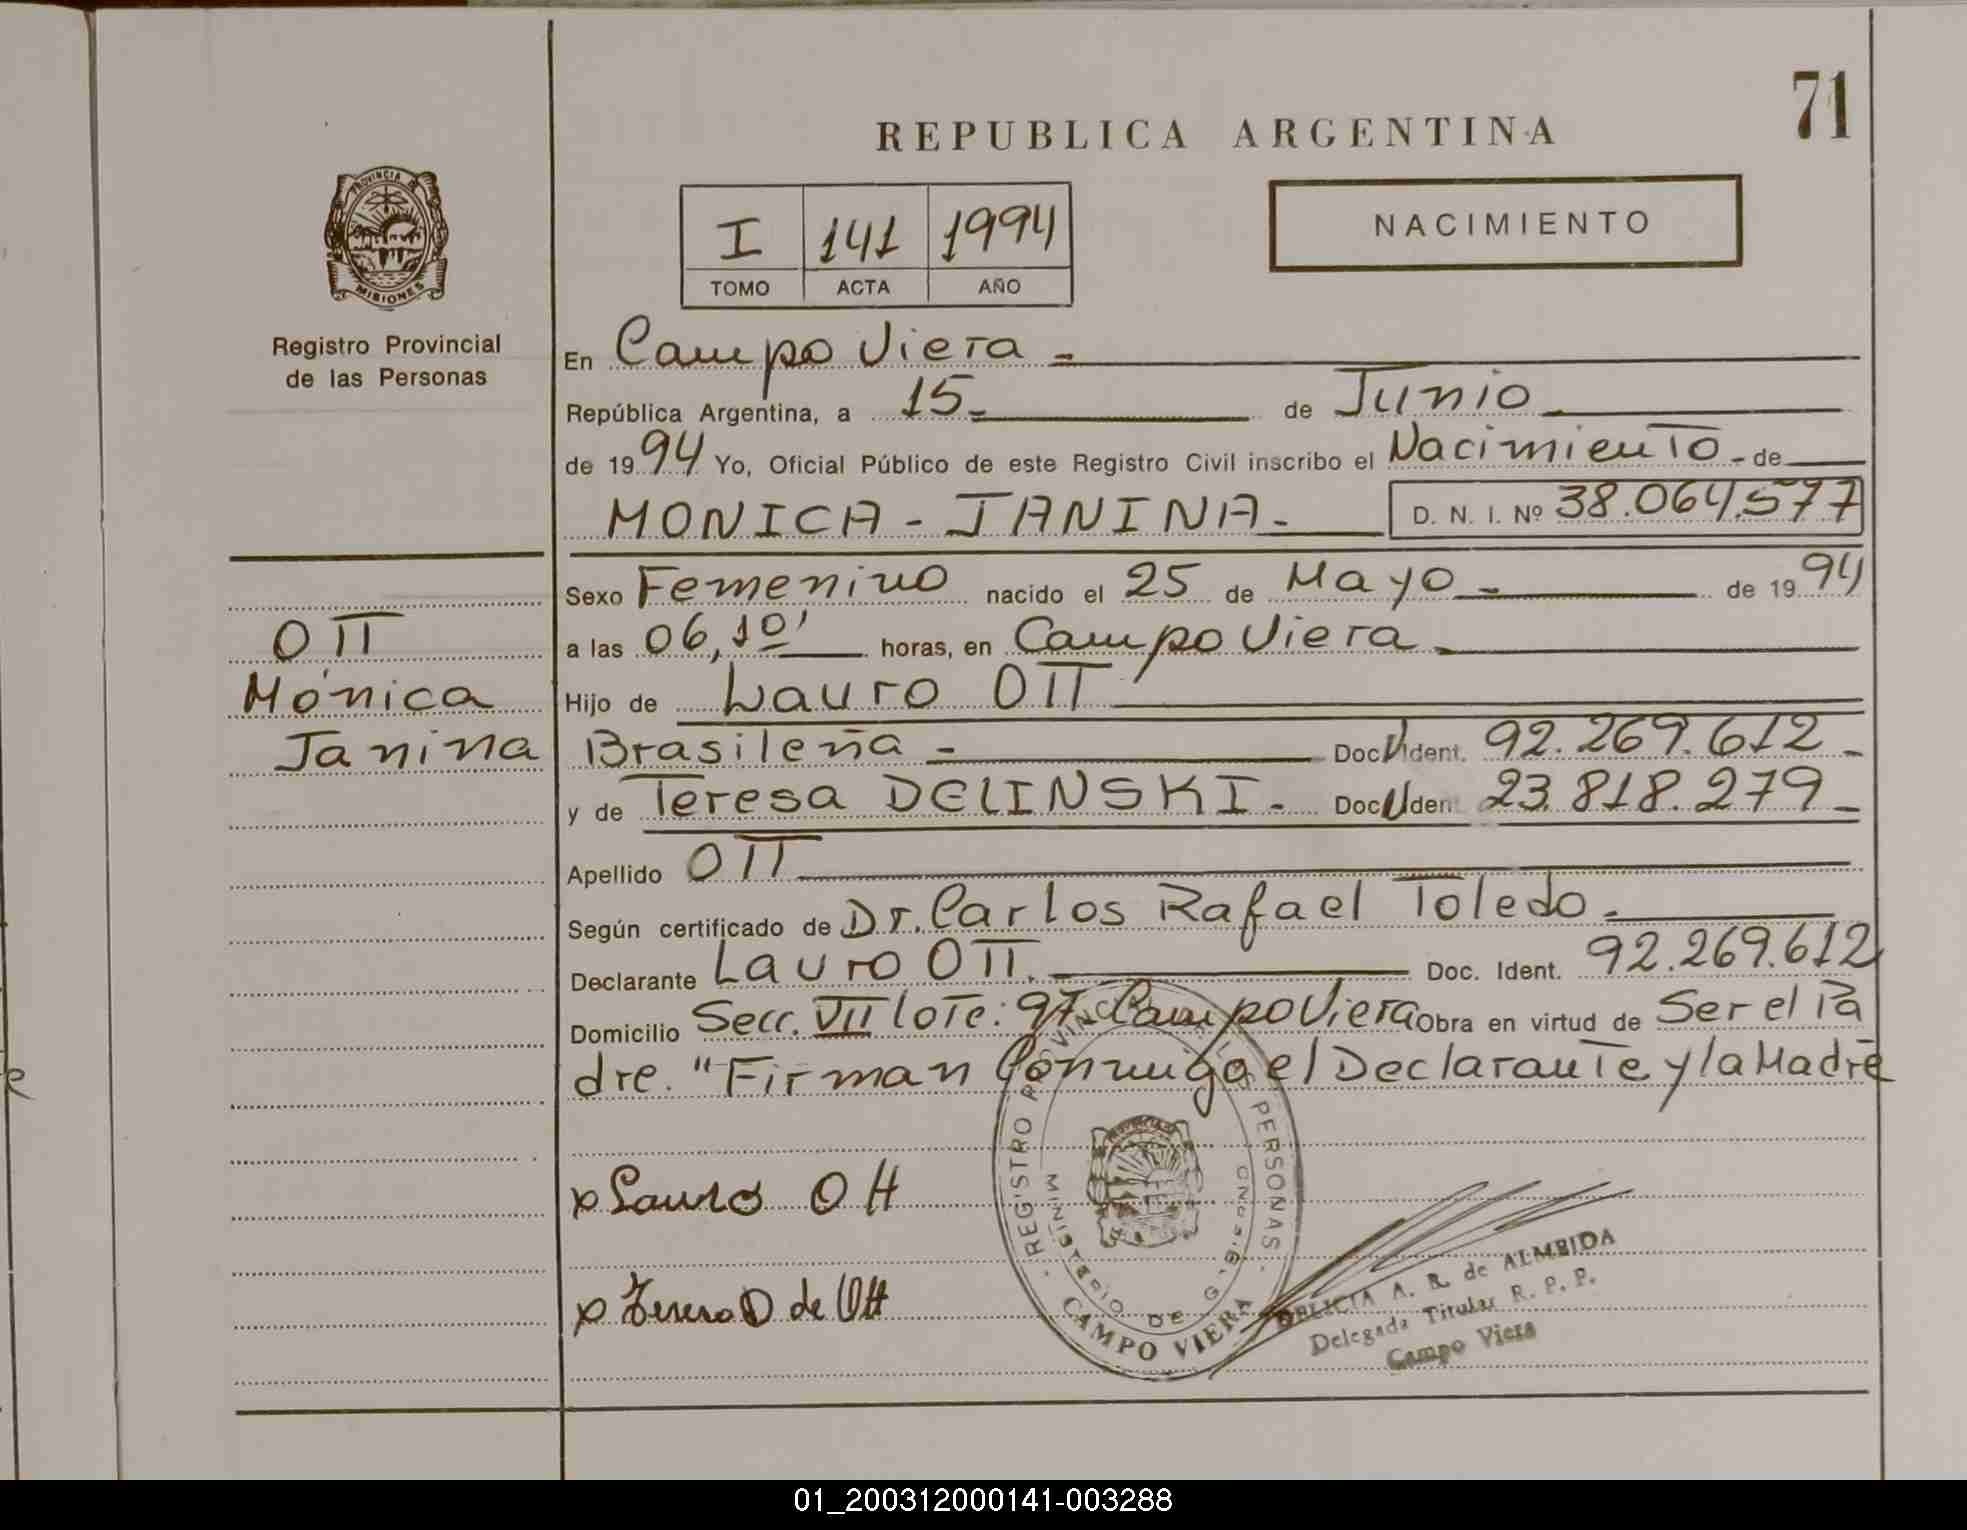 71
REPUBLICA ARGENTINA
NACIMIENTO
I 141 1994
TOMO ACTA AÑO
PROVINCIA DE
MISIONES
Registro Provincial
de las Personas
En Campo Viera -
República Argentina, a 15- de Junio
de 1994 Yo, Oficial Público de este Registro Civil inscribo el Nacimiento - de
MONICA - JANINA - D. N. I. Nº 38.064.577
Sexo Femenino nacido el 25 de Mayo - de 1994
a las 06,10' horas, en Campo Viera -
Hijo de Lauro OTT
Brasileña - Doc. Ident. 92.269.612 -
y de Teresa DELINSKI - Doc. Ident. 23.818.279 -
Apellido OTT
Según certificado de Dr. Carlos Rafael Toledo -
Declarante Lauro OTT. Doc. Ident. 92.269.612
Domicilio Secc. VII lote: 97- Campo Viera Obra en virtud de Ser el Pa
dre. "Firman Conmigo el Declarante y la Madre
OTT
Mónica
Janina
x Lauro Ott
x Teresa D de Ott
REGISTRO PROVINCIAL DE LAS PERSONAS
MINISTERIO DE GOBIERNO
CAMPO VIERA
DELICIA A. R. de ALMEIDA
Delegada Titular R. P. P.
Campo Viera
01_200312000141-003288